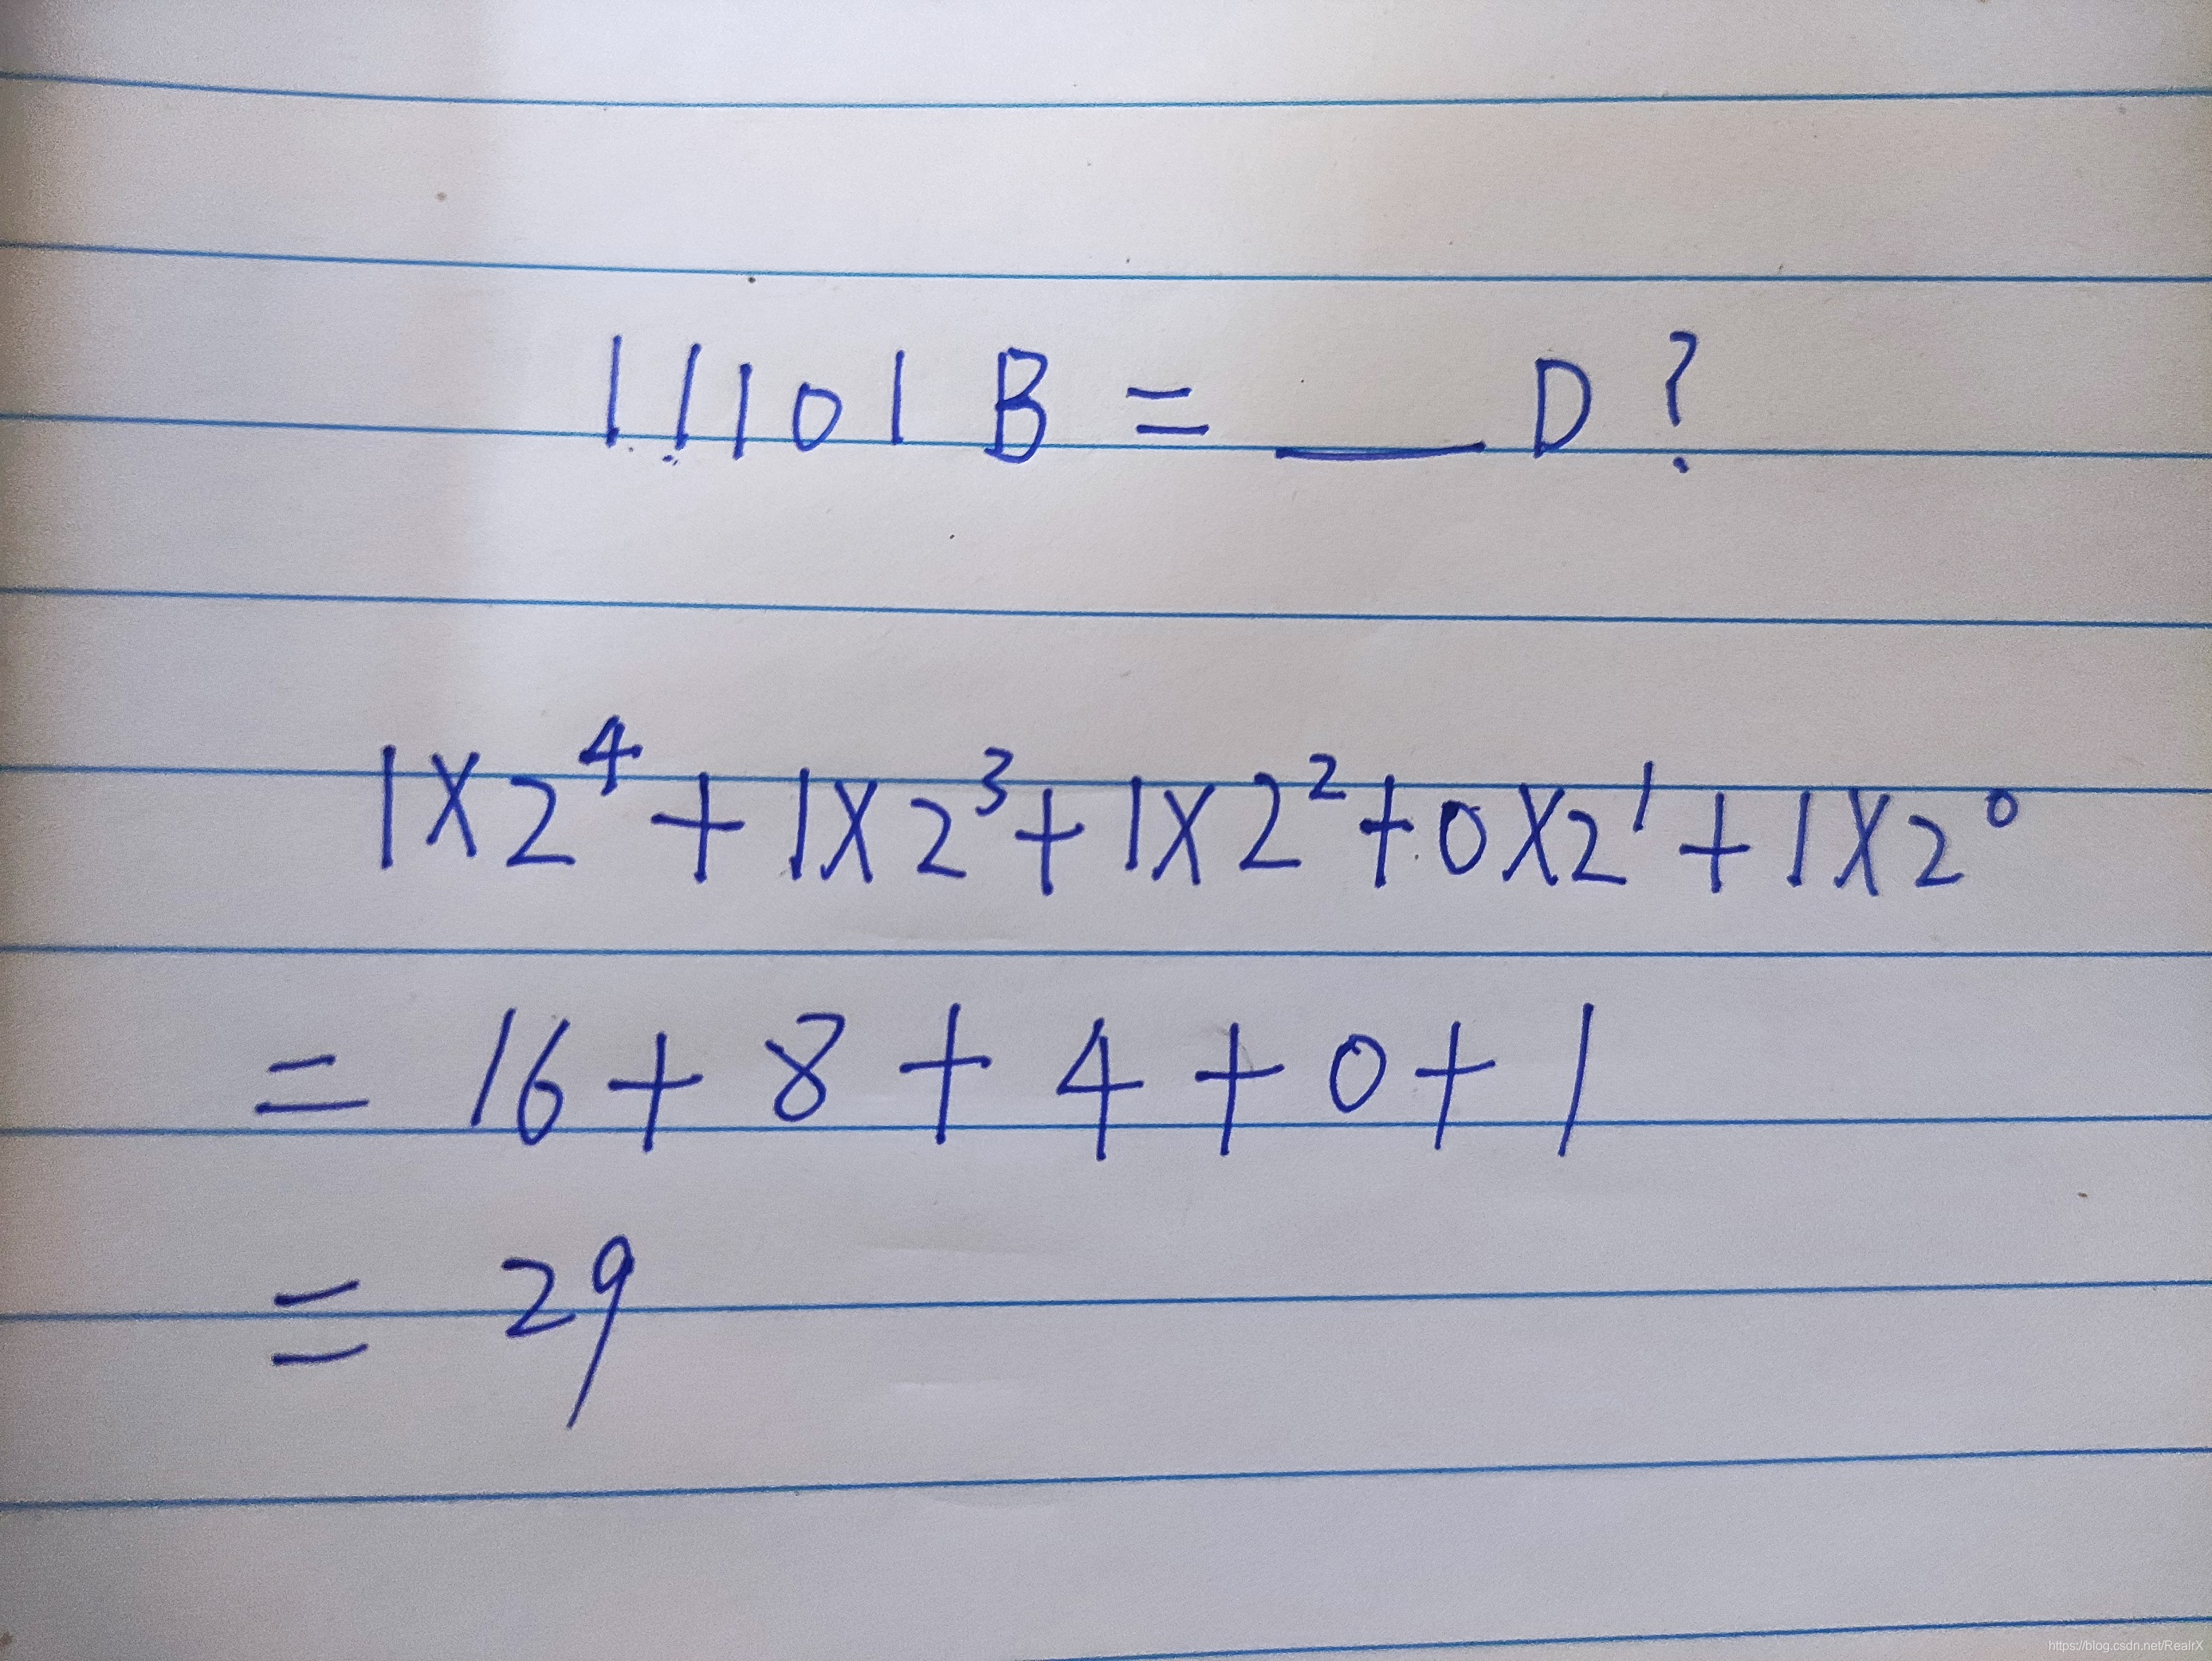 11101 B = ___ D ?
1X2⁴+1X2³+1X2²+0X2¹+1X2⁰
= 16+8+4+0+1
= 29
https://blog.csdn.net/RealrX